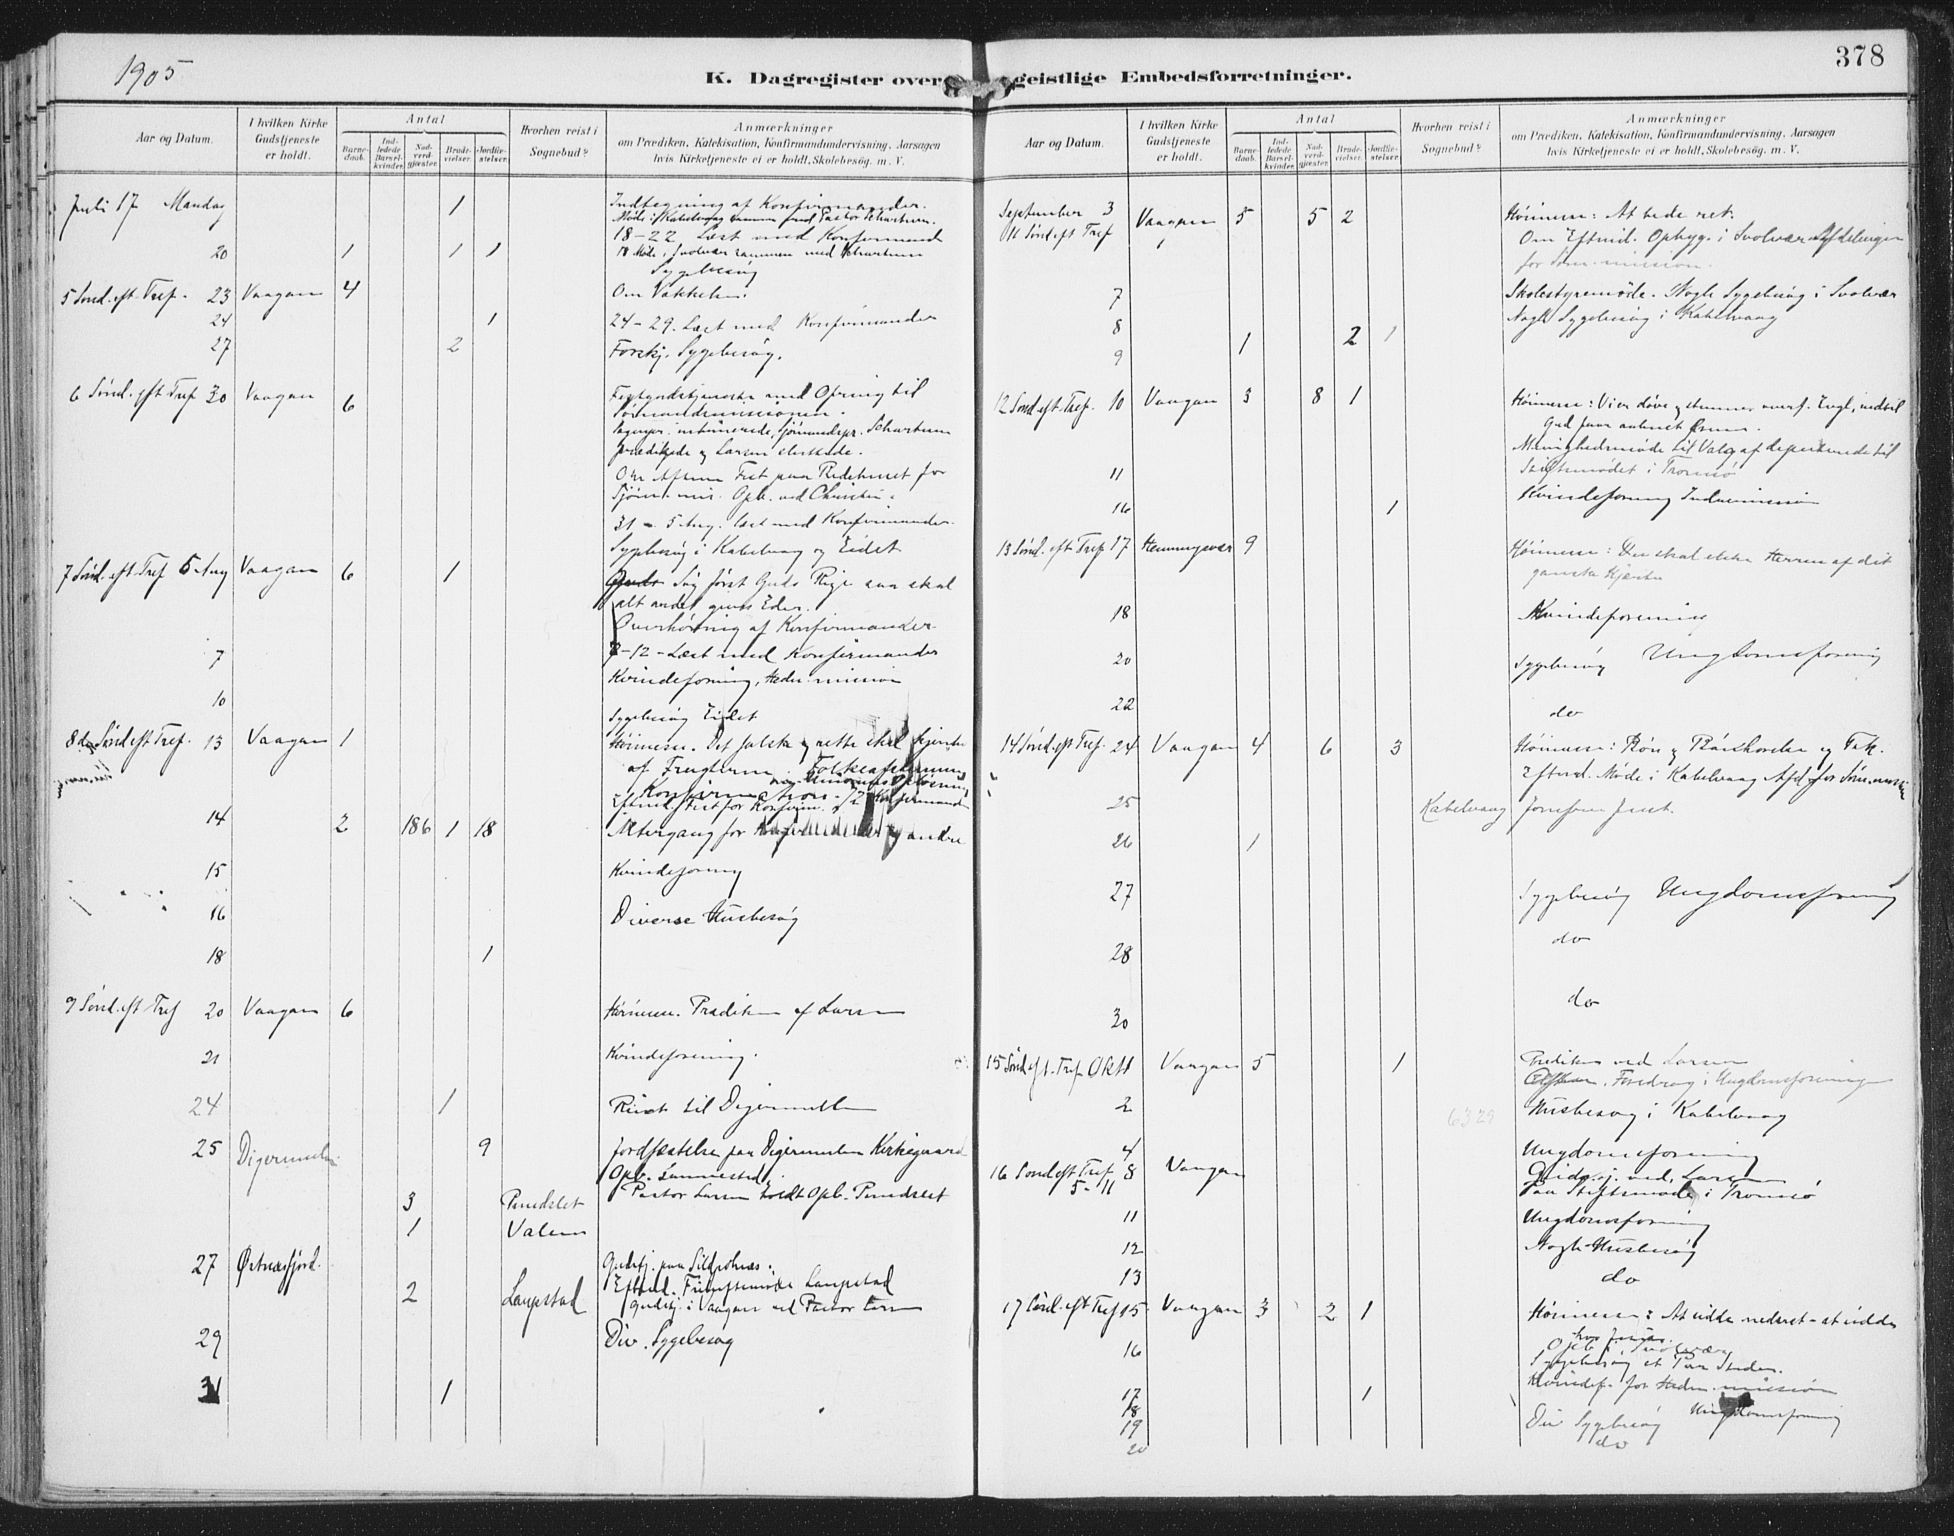 1905
K. Dagregister over geistlige Embedsforretninger.
378
Aar og Datum.
I hvilken Kirke Gudstjeneste er holdt.
Antal
Barnedaab.
Indledede Barselkvinder.
Nadverdgjæster.
Brudevielser.
Jordfæstelser.
Hvorhen reist i Sognebud?
Anmærkninger
om Prædiken, Katekisation, Konfirmandundervisning, Aarsagen
hvis Kirketjeneste ei er holdt, Skolebesøg. m. V.
Juli 17 Mandag 1 Indtegning af Konfirmander.
Møde i Kabelvaag sammen med Pastor Schartum.
18-22 Læst med Konfirmand
20 1 1 1 Møde i Svolvær sammen med Schartum
Sygebesøg
5 Sønd. eft. Tref. 23 Vaagan 4 Om Vækkelse.
24 1 24-29. Læst med Konfirmander
27 2 Forskj. Sygebesøg.
6 Sønd. eft Tref 30 Vaagan 6 med Ofring til
Sømandsmissionen.
Schartum
prædikede og Larsen
Om Aftenen Fest paa Bedehuset for
Sjøm. mis. Opb. ved
31 - 5 Aug. læst med Konfirmander.
Sygebesøg i Kabelvaag og Eidet
7 Sønd. eft Tref 5 Aug Vaagan 6 1 Søg først Guds Rige saa skal
alt andet gives Eder.
Overhøring af Konfirmander
7 7-12 - Læst med Konfirmander
Kvindeforning, Hedn. mission
10 Sygebesøg Eidet
8de Sønd eft Tref. 13 Vaagan 1 Høimesse. Det falske og rette skal kjendes
af Frugterne. Folkeafstemning
Konfirmation. 72 Konfirmander
Eftmd. Fest for Konfirm.
14 2 186 1 18 Altergang for og andre
15 Kvindeforning
16 Diverse Husbesøg
18 1
9 Sønd. eft Tref 20 Vaagan 6 Høimesse. Prædiken af Larsen
21 Kvindeforening.
24 1 Reist til Digermulen
25 Digermulen 9 Jordfæstelse paa Digermulen Kirkegaard
Opb.
3 Pundslet Pastor Larsen holdt Opb. Pundslet
1 Valen
27 Østnesfjord. Gudstj. paa Sildpolnes.
2 Laupstad Eftmd. Laupstad
Gudstj. i Vaagan ved Pastor Larsen
29 Div. Sygebesøg
31 1
Aar og Datum.
I hvilken Kirke Gudstjeneste er holdt.
Antal
Barnedaab.
Indledede Barselkvinder.
Nadverdgjæster.
Brudevielser.
Jordfæstelser.
Hvorhen reist i Sognebud?
Anmærkninger
om Prædiken, Katekisation, Konfirmandundervisning, Aarsagen
hvis Kirketjeneste ei er holdt, Skolebesøg. m. V.
September 3 Vaagan 5 5 2 Høimesse: At bede ret.
11 Sønd. eft Tref Om Eftmid. Opbyg. i Svolvær Afdelingen
for Søm. mission.
7 Skolestyremøde. Nogle Sygebesøg i Svolvær
8 2 1 Nogle Sygebesøg i Kabelvaag
9 1
12 Sønd eft Tref. 10 Vaagan 3 8 1 Høimesse: Vi er døve og stumme
Gud faar aabnet Ørene.
Menighedsmøde til Valg af deputerede til
11 Stiftsmødet i Tromsø
16 1 Kvindeforning Indremission
13 Sønd. eft Tref 17 Henningsvær 9 Høimesse: Du skal elske Herren af dit
ganske Hjerte
18 Kvindeforening
20 Sygebesøg Ungdomsforening
22 do
14 Sønd. eft Tref. 24 Vaagan 4 6 3 Høimesse: Bøn og Bønhørelse og Tak.
Eftmd. Møde i Kabelvaag Afd. for Søm. mission
25 Kabelvaag
26 1
27 Sygebesøg Ungdomsforening
28 do
30 do
15 Sønd eft. Tref Okt 1 Vaagan 5 1 Prædiken ved Larsen
Aften. Foredrag i Ungdomsforeningen
2 6329 Husbesøg i Kabelvaag
4 Ungdomsforening
16 Sønd eft Tref 8 Vaagan Gudstj. ved Larsen
5-11 Paa Stiftsmøde i Tromsø
11 Ungdomsforning
12 Nogle Husbesøg
13 do
17 Sønd. eft Tref 15 Vaagan 3 2 1 Høimesse: At
16 Opb. i Svolvær
Sygebesøg et Par Steder.
17 1 Kvindef. for Hedn. mission
18 Ungdomsforning
19 Div Sygebesøg
20 do